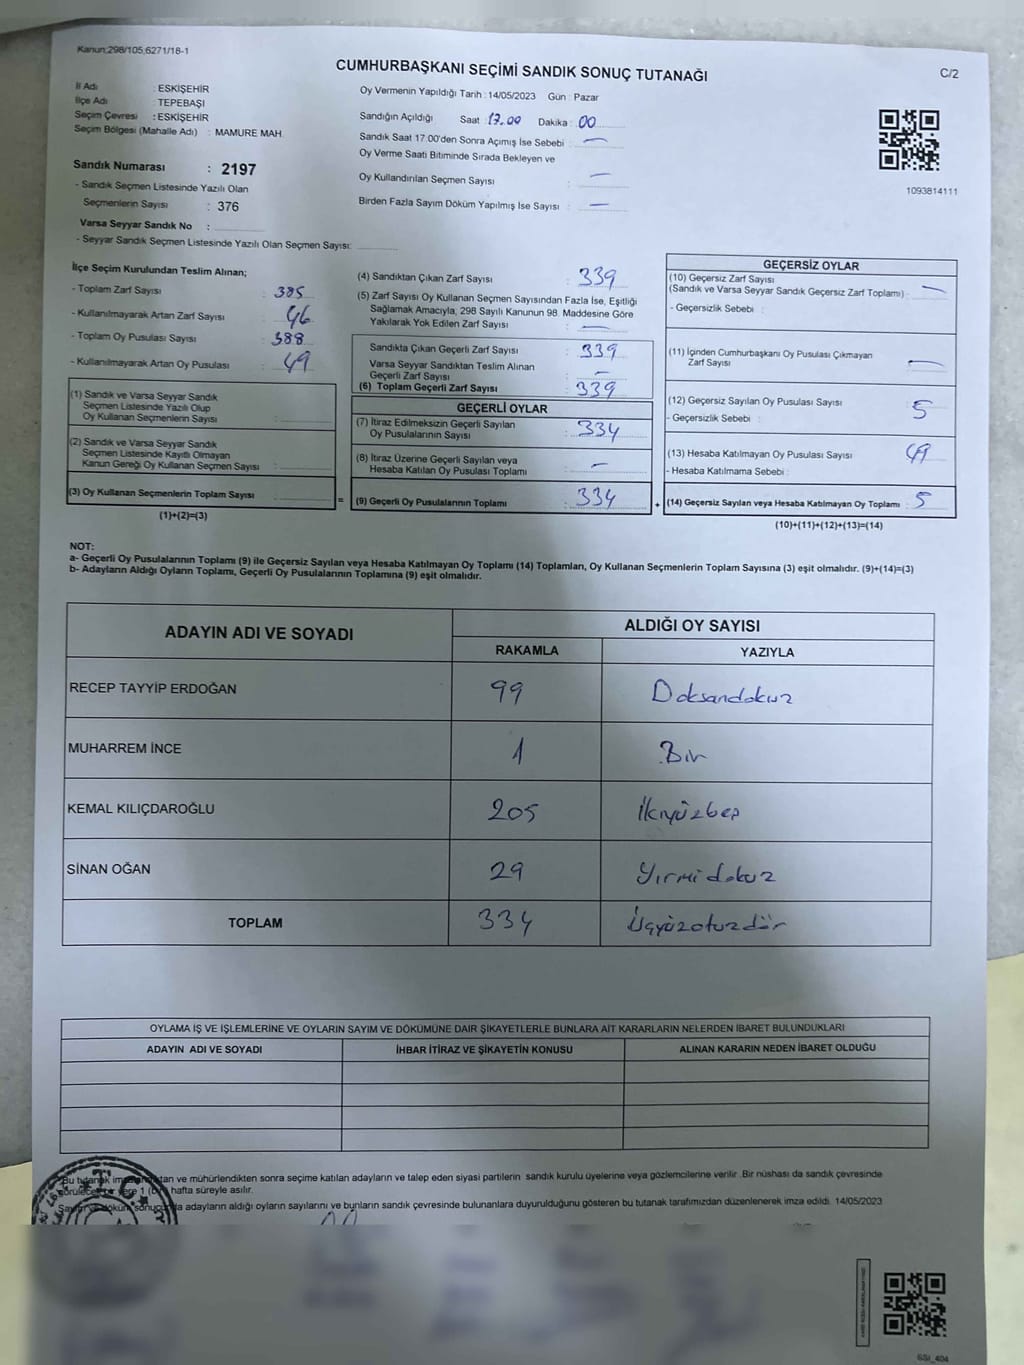 Kanun;298/105;6271/18-1
CUMHURBAŞKANI SEÇİMİ SANDIK SONUÇ TUTANAĞI
C/2
İl Adı : ESKİŞEHİR
İlçe Adı : TEPEBAŞI
Seçim Çevresi : ESKİŞEHİR
Seçim Bölgesi (Mahalle Adı) : MAMURE MAH.
Sandık Numarası : 2197
- Sandık Seçmen Listesinde Yazılı Olan
Seçmenlerin Sayısı : 376
Varsa Seyyar Sandık No :
- Seyyar Sandık Seçmen Listesinde Yazılı Olan Seçmen Sayısı:
Oy Vermenin Yapıldığı Tarih : 14/05/2023 Gün : Pazar
Sandığın Açıldığı Saat : 17.00 Dakika : 00
Sandık Saat 17:00'den Sonra Açımış İse Sebebi : —
Oy Verme Saati Bitiminde Sırada Bekleyen ve
Oy Kullandırılan Seçmen Sayısı : —
Birden Fazla Sayım Döküm Yapılmış İse Sayısı : —
1093814111
İlçe Seçim Kurulundan Teslim Alınan;
- Toplam Zarf Sayısı : 385
- Kullanılmayarak Artan Zarf Sayısı : 46
- Toplam Oy Pusulası Sayısı : 388
- Kullanılmayarak Artan Oy Pusulası : 49
(1) Sandık ve Varsa Seyyar Sandık
Seçmen Listesinde Yazılı Olup
Oy Kullanan Seçmenlerin Sayısı :
(2) Sandık ve Varsa Seyyar Sandık
Seçmen Listesinde Kayıtlı Olmayan
Kanun Gereği Oy Kullanan Seçmen Sayısı :
(3) Oy Kullanan Seçmenlerin Toplam Sayısı :
(1)+(2)=(3)
=
(4) Sandıktan Çıkan Zarf Sayısı : 339
(5) Zarf Sayısı Oy Kullanan Seçmen Sayısından Fazla İse, Eşitliği
Sağlamak Amacıyla, 298 Sayılı Kanunun 98. Maddesine Göre
Yakılarak Yok Edilen Zarf Sayısı : —
Sandıkta Çıkan Geçerli Zarf Sayısı : 339
Varsa Seyyar Sandıktan Teslim Alınan
Geçerli Zarf Sayısı : —
(6) Toplam Geçerli Zarf Sayısı : 339
GEÇERLİ OYLAR
(7) İtiraz Edilmeksizin Geçerli Sayılan
Oy Pusulalarının Sayısı : 334
(8) İtiraz Üzerine Geçerli Sayılan veya
Hesaba Katılan Oy Pusulası Toplamı : —
(9) Geçerli Oy Pusulalarının Toplamı : 334
+
GEÇERSİZ OYLAR
(10) Geçersiz Zarf Sayısı
(Sandık ve Varsa Seyyar Sandık Geçersiz Zarf Toplamı) : —
- Geçersizlik Sebebi :
(11) İçinden Cumhurbaşkanı Oy Pusulası Çıkmayan
Zarf Sayısı : —
(12) Geçersiz Sayılan Oy Pusulası Sayısı : 5
- Geçersizlik Sebebi :
(13) Hesaba Katılmayan Oy Pusulası Sayısı : 49
- Hesaba Katılmama Sebebi :
(14) Geçersiz Sayılan veya Hesaba Katılmayan Oy Toplamı : 5
(10)+(11)+(12)+(13)=(14)
NOT:
a- Geçerli Oy Pusulalarının Toplamı (9) ile Geçersiz Sayılan veya Hesaba Katılmayan Oy Toplamı (14) Toplamları, Oy Kullanan Seçmenlerin Toplam Sayısına (3) eşit olmalıdır. (9)+(14)=(3)
b- Adayların Aldığı Oyların Toplamı, Geçerli Oy Pusulalarının Toplamına (9) eşit olmalıdır.
ADAYIN ADI VE SOYADI
ALDIĞI OY SAYISI
RAKAMLA YAZIYLA
RECEP TAYYİP ERDOĞAN 99 Doksandokuz
MUHARREM İNCE 1 Bir
KEMAL KILIÇDAROĞLU 205 İkiyüzbeş
SİNAN OĞAN 29 Yirmidokuz
TOPLAM 334 Üçyüzotuzdör
OYLAMA İŞ VE İŞLEMLERİNE VE OYLARIN SAYIM VE DÖKÜMÜNE DAİR ŞİKAYETLERLE BUNLARA AİT KARARLARIN NELERDEN İBARET BULUNDUKLARI
ADAYIN ADI VE SOYADI İHBAR İTİRAZ VE ŞİKAYETİN KONUSU ALINAN KARARIN NEDEN İBARET OLDUĞU
Bu tutanak ve mühürlendikten sonra seçime katılan adayların ve talep eden siyasi partilerin sandık kurulu üyelerine veya gözlemcilerine verilir. Bir nüshası da sandık çevresinde
yere 1 hafta süreyle asılır.
adayların aldığı oyların sayılarını ve bunların sandık çevresinde bulunanlara duyurulduğunu gösteren bu tutanak tarafımızdan düzenlenerek imza edildi. 14/05/2023